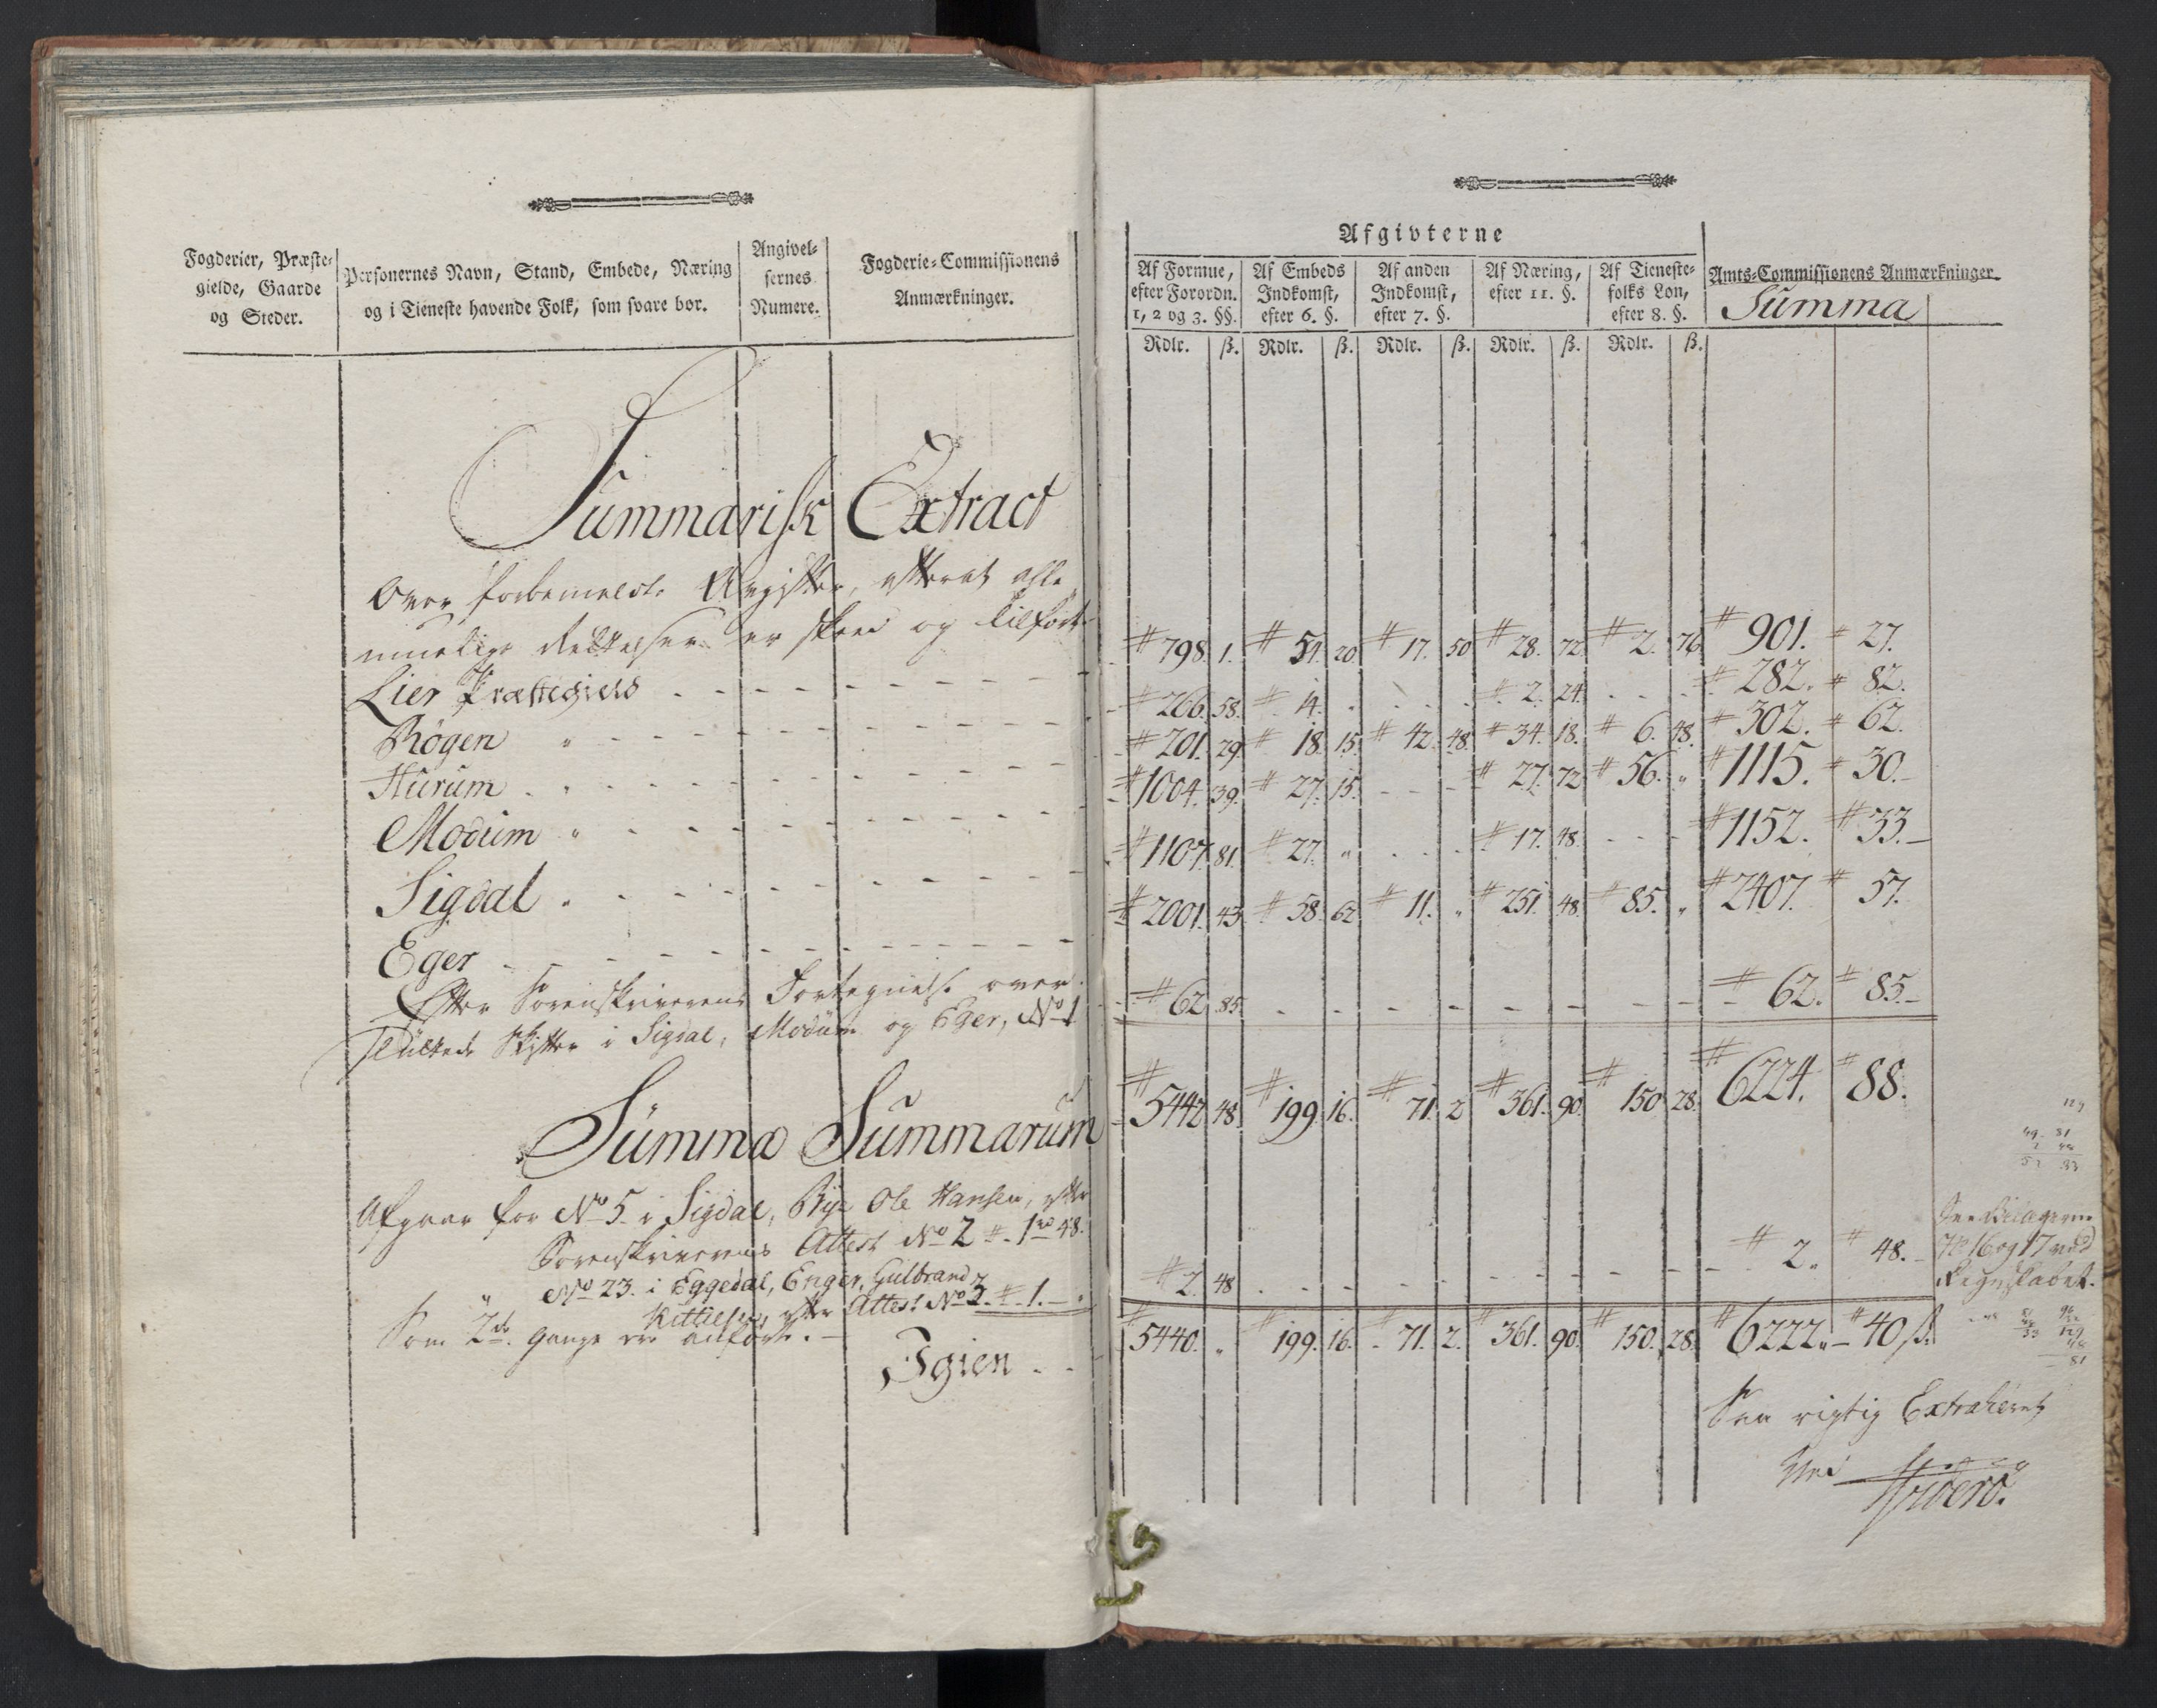 Fogderier, Præste-
gielde, Gaarde
og Steder.
Personernes Navn, Stand, Embede, Næring
og i Tieneste havende Folk, som svare bør.
Angivel-
sernes
Numere.
Fogderie-Commissionens
Anmærkninger.
Summarisk Extract
Over forbemeldte Register, efterat alle
muelige Rettelser er skeed og tilført
Lier Præstegield
Røgen "
Hurum "
Modum "
Sigdal
Eger
Efter Sorenskriverens Fortegnelse over
Skiftter i Sigdal, Modum og Eger, No 1
Summa Summarum
Afgaar for No 5 i Sigdal, Ole Hansen, efter
Sorenskriverens Attest No 2 # 1 rd 48.
" No 23. i Eggedal, Enger, Gulbrand
Kittilsen, efter Attest No 3. # 1. -
Som 2de Gange ere anført. -
Igien
Afgivterne
Af Formue,
efter Forordn.
1, 2 og 3. §§.
Af Embeds
Indkomst,
efter 6. §.
Af anden
Indkomst,
efter 7. §.
Af Næring,
efter 11. §.
Af Tieneste-
folks Løn,
efter 8. §.
Amts-Commissionens Anmærkninger.
Summa
Rdlr. ß. Rdlr. ß. Rdlr. ß. Rdlr. ß. Rdlr. ß.
# 798. 1. # 54. 20. # 17. 50 # 28. 72 # 2. 76 # 901. # 27.
# 266. 58. # 14. # 2. 24. # 282. # 82.
# 201. 29. # 18. 15. # 42. 48. # 34. 18. # 6. 48. # 302. # 62.
# 1004. 39. # 27. 15. # 27. 72 # 56. " # 1115. # 30.
# 1107. 81. # 27. " # 17. 48. # 1152. # 33.
# 2001. 43. # 58. 62 # 11. " # 251. 48. # 85. " # 2407. # 57.
# 62. 85. # 62. # 85.
# 5442 48 # 199. 16. # 71. 2 # 361. 90. # 150 28. # 6224. # 88.
# 2. 48 # 2. # 48.
See Bilagerne
No 16 og 17 ved
Regnskabet.
# 5440. " # 199. 16. 71. 2. # 361. 90. # 150. 28. # 6222. # 40 ß.
Saa rigtig Extraheret